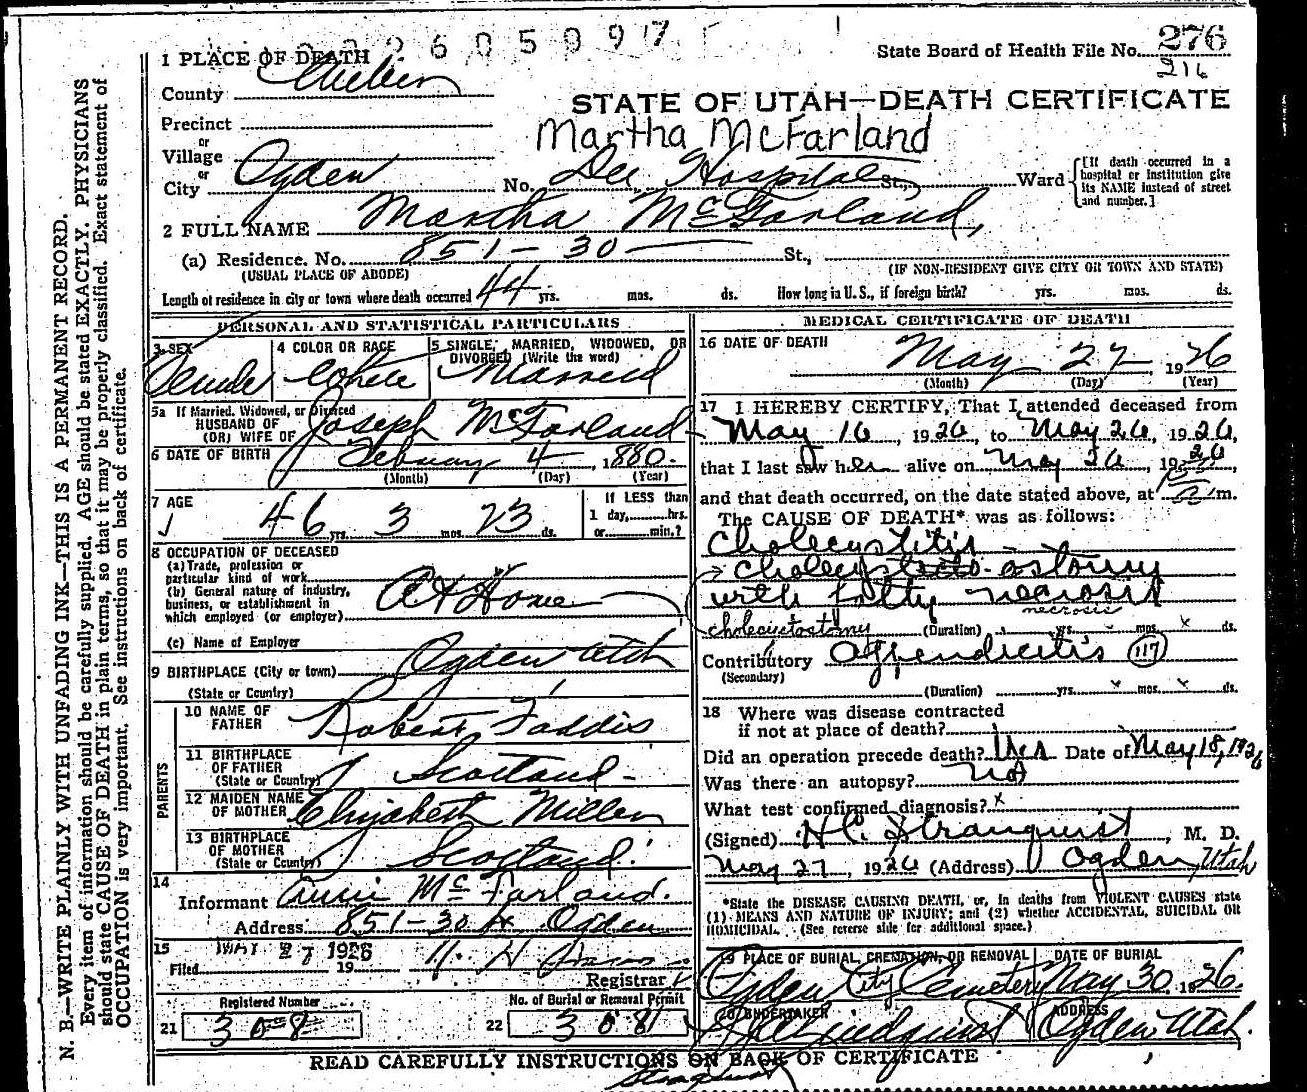 2605997
State Board of Health File No. 276
216
1 PLACE OF DEATH
County Weber
STATE OF UTAH—DEATH CERTIFICATE
Precinct
Martha McFarland
or
Village
or
City Ogden No. Dee Hospital St., Ward [If death occurred in a hospital or institution give its NAME instead of street and number.]
2 FULL NAME Martha McFarland,
(a) Residence. No. 851-30 St.,
(USUAL PLACE OF ABODE) (IF NON-RESIDENT GIVE CITY OR TOWN AND STATE)
Length of residence in city or town where death occurred 44 yrs. mos. ds. How long in U. S., if foreign birth? yrs. mos. ds.
PERSONAL AND STATISTICAL PARTICULARS
3 SEX Female
4 COLOR OR RACE White
5 SINGLE, MARRIED, WIDOWED, OR DIVORCED (Write the word) Married
5a If Married, Widowed, or Divorced
HUSBAND OF
(OR) WIFE OF Joseph McFarland
6 DATE OF BIRTH February 4, 1880.
(Month) (Day) (Year)
7 AGE 46 yrs. 3 mos. 23 ds.
If LESS than
1 day, hrs.
or min.?
8 OCCUPATION OF DECEASED
(a) Trade, profession or
particular kind of work
(b) General nature of industry,
business, or establishment in
which employed (or employer) At Home
(c) Name of Employer
9 BIRTHPLACE (City or town) Ogden Utah
(State or Country)
PARENTS
10 NAME OF
FATHER Robert Faddis
11 BIRTHPLACE
OF FATHER
(State or Country) Scotland
12 MAIDEN NAME
OF MOTHER Elizabeth Miller
13 BIRTHPLACE
OF MOTHER
(State or Country) Scotland.
14
Informant McFarland.
Address 851-30 st Ogden
15
Filed MAY 27 1926 19
Registrar
Registered Number
21 308
No. of Burial or Removal Permit
22 3081
MEDICAL CERTIFICATE OF DEATH
16 DATE OF DEATH May 27, 1926
(Month) (Day) (Year)
17 I HEREBY CERTIFY, That I attended deceased from
May 16, 1926, to May 26, 1926,
that I last saw her alive on May 26, 1926,
and that death occurred, on the date stated above, at m.
The CAUSE OF DEATH* was as follows:
Cholecystitis
with fatty necrosis
necrosis
cholecystostomy (Duration) yrs. mos. ds.
Contributory Appendicitis 117
(Secondary)
(Duration) yrs. mos. ds.
18 Where was disease contracted
if not at place of death?
Did an operation precede death? Yes Date of May 18, 1926
Was there an autopsy? No
What test confirmed diagnosis? x
(Signed) H.C. Stranquist, M. D.
May 27, 1926 (Address) Ogden, Utah
*State the DISEASE CAUSING DEATH, or, in deaths from VIOLENT CAUSES state
(1) MEANS AND NATURE OF INJURY; and (2) whether ACCIDENTAL, SUICIDAL OR
HOMICIDAL. (See reverse side for additional space.)
19 PLACE OF BURIAL, CREMATION, OR REMOVAL Ogden City Cemetery
DATE OF BURIAL May 30, 1926.
20 UNDERTAKER Lindquist
ADDRESS Ogden, Utah.
READ CAREFULLY INSTRUCTIONS ON BACK OF CERTIFICATE
N. B.—WRITE PLAINLY WITH UNFADING INK—THIS IS A PERMANENT RECORD.
Every item of information should be carefully supplied. AGE should be stated EXACTLY. PHYSICIANS
should state CAUSE OF DEATH in plain terms, so that it may be properly classified. Exact statement of
OCCUPATION is very important. See instructions on back of certificate.